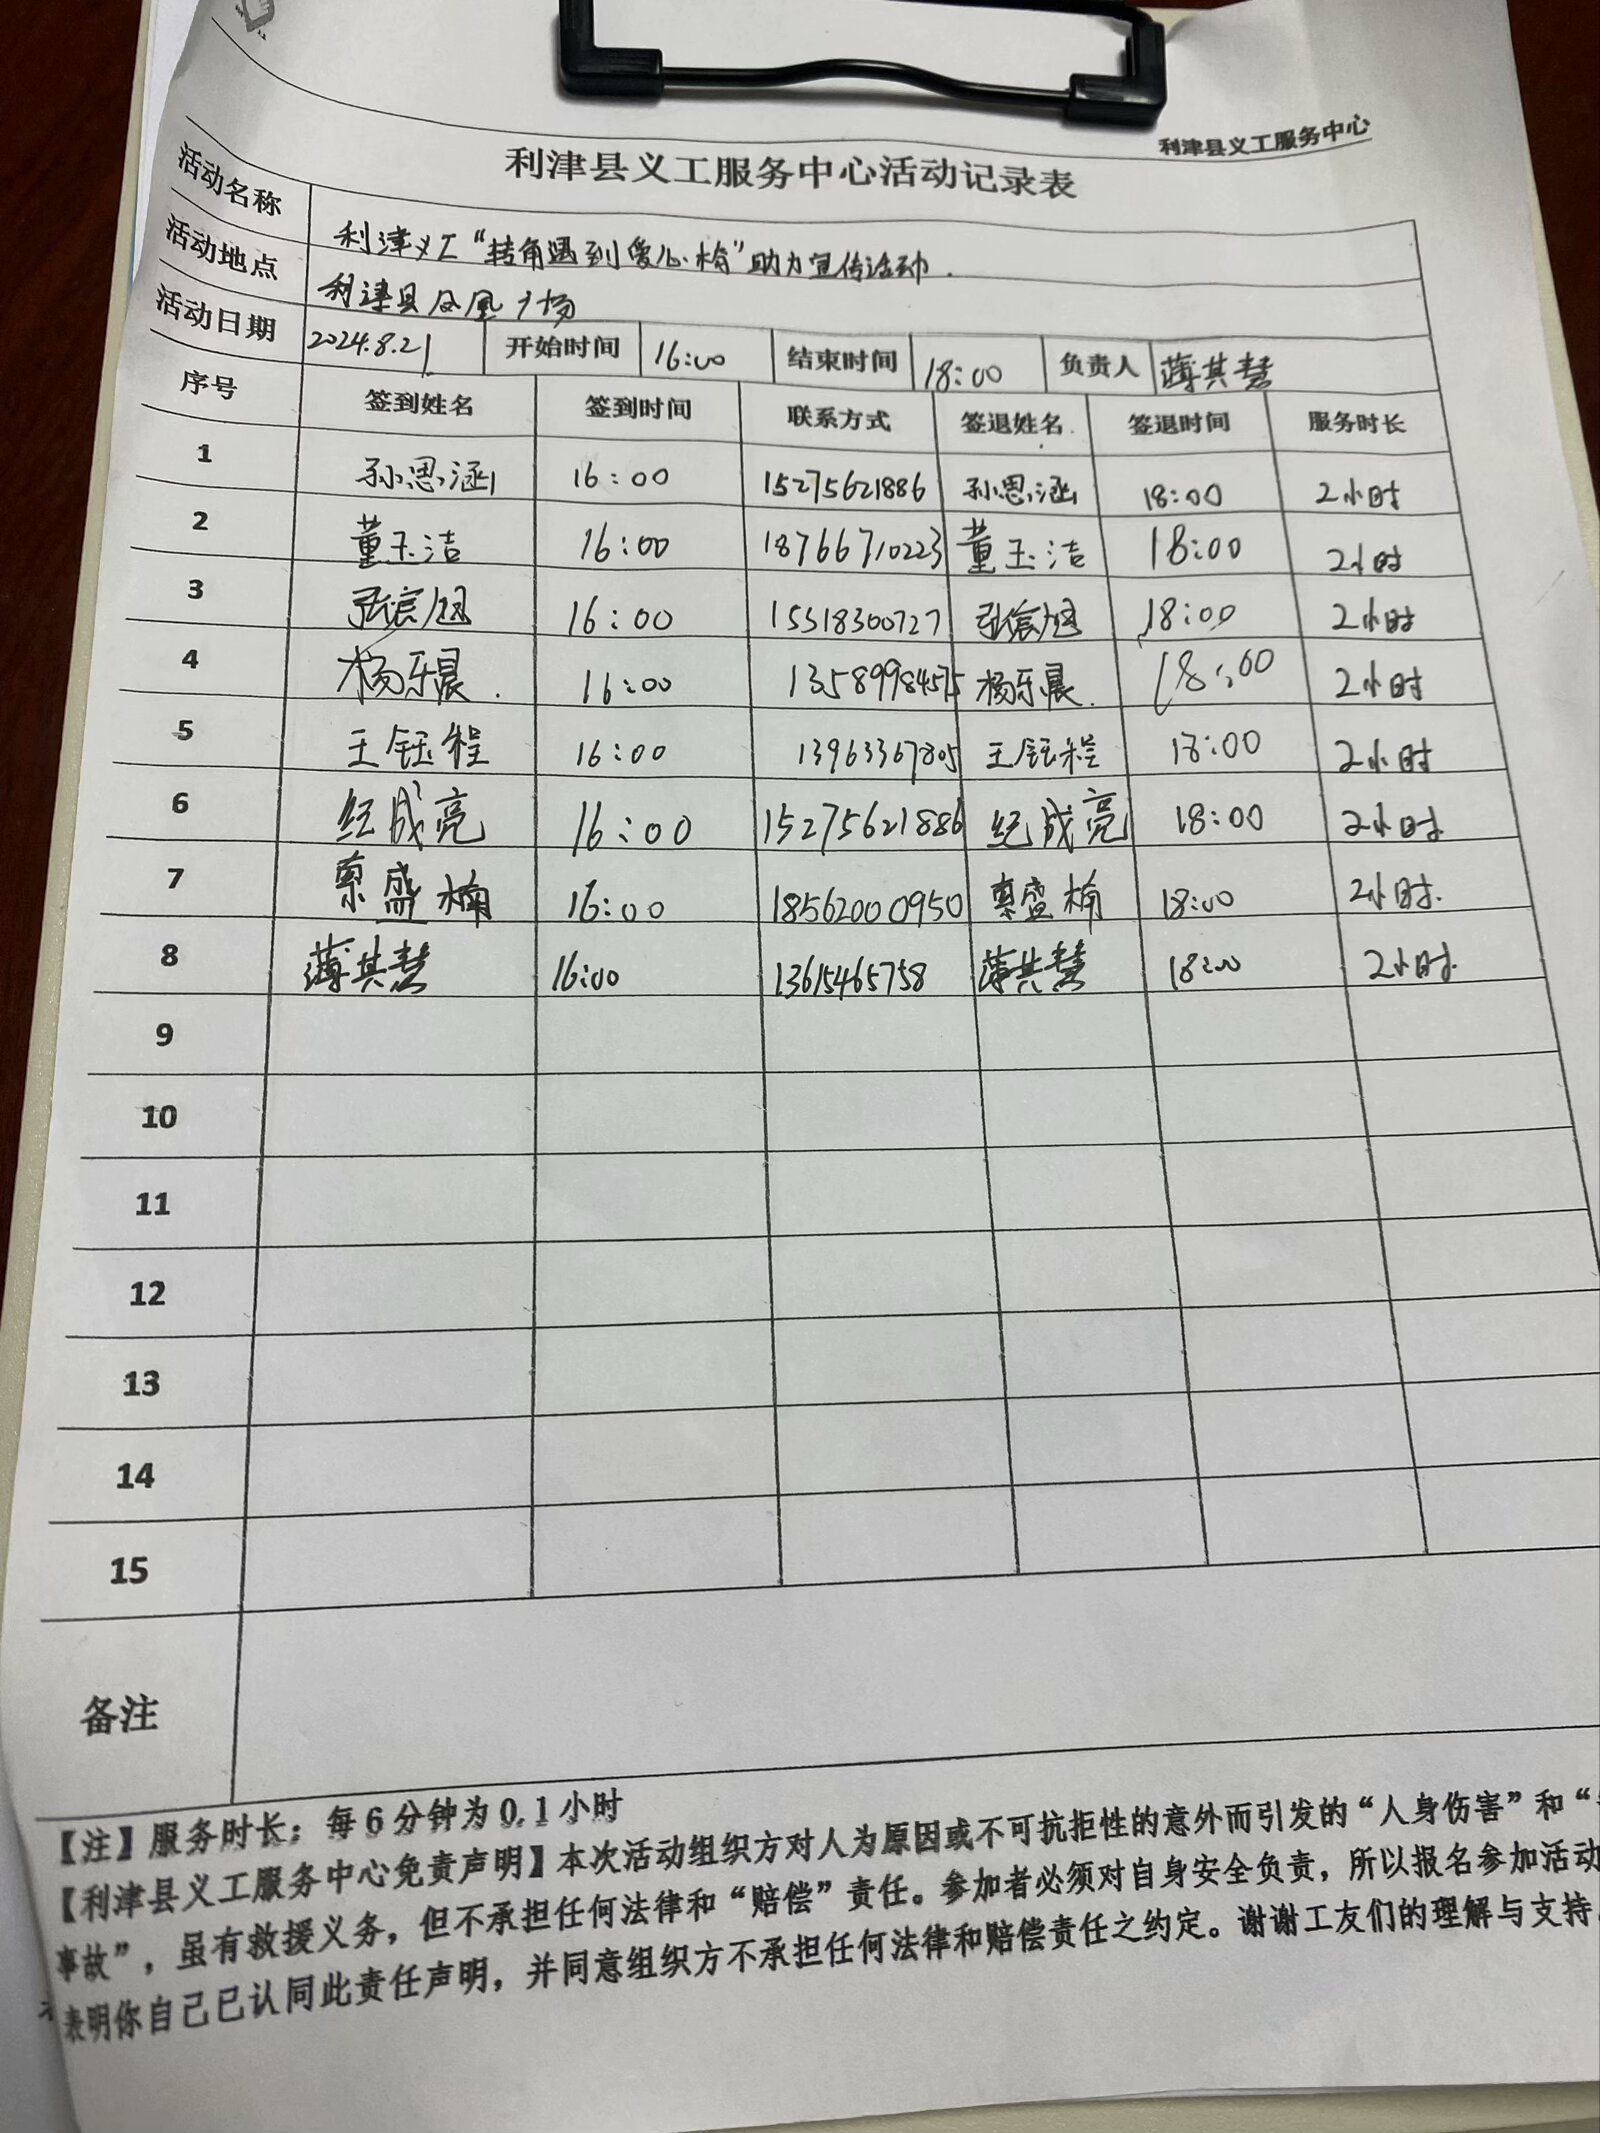 利津县义工服务中心
利津县义工服务中心活动记录表
活动名称 利津义工“转角遇到爱心椅”助力宣传活动.
活动地点 利津县凤凰广场
活动日期 2024.8.21 开始时间 16:00 结束时间 18:00 负责人 薄其慧
序号 签到姓名 签到时间 联系方式 签退姓名 签退时间 服务时长
1 孙思涵 16:00 15275621886 孙思涵 18:00 2小时
2 董玉洁 16:00 18766710223 董玉洁 18:00 2小时
3 张宸旭 16:00 15518300727 张宸旭 18:00 2小时
4 杨乐晨. 16:00 13589984575 杨乐晨. 18:00 2小时
5 王钰程 16:00 13963367805 王钰程 18:00 2小时
6 纪成亮 16:00 15275621886 纪成亮 18:00 2小时.
7 盛楠 16:00 18562000950 盛楠 18:00 2小时.
8 薄其慧 16:00 13615465758 薄其慧 18:00 2小时.
9
10
11
12
13
14
15
备注
【注】服务时长：每6分钟为0.1小时
【利津县义工服务中心免责声明】本次活动组织方对人为原因或不可抗拒性的意外而引发的“人身伤害”和“
事故”，虽有救援义务，但不承担任何法律和“赔偿”责任。参加者必须对自身安全负责，所以报名参加活动
表明你自己已认同此责任声明，并同意组织方不承担任何法律和赔偿责任之约定。谢谢工友们的理解与支持